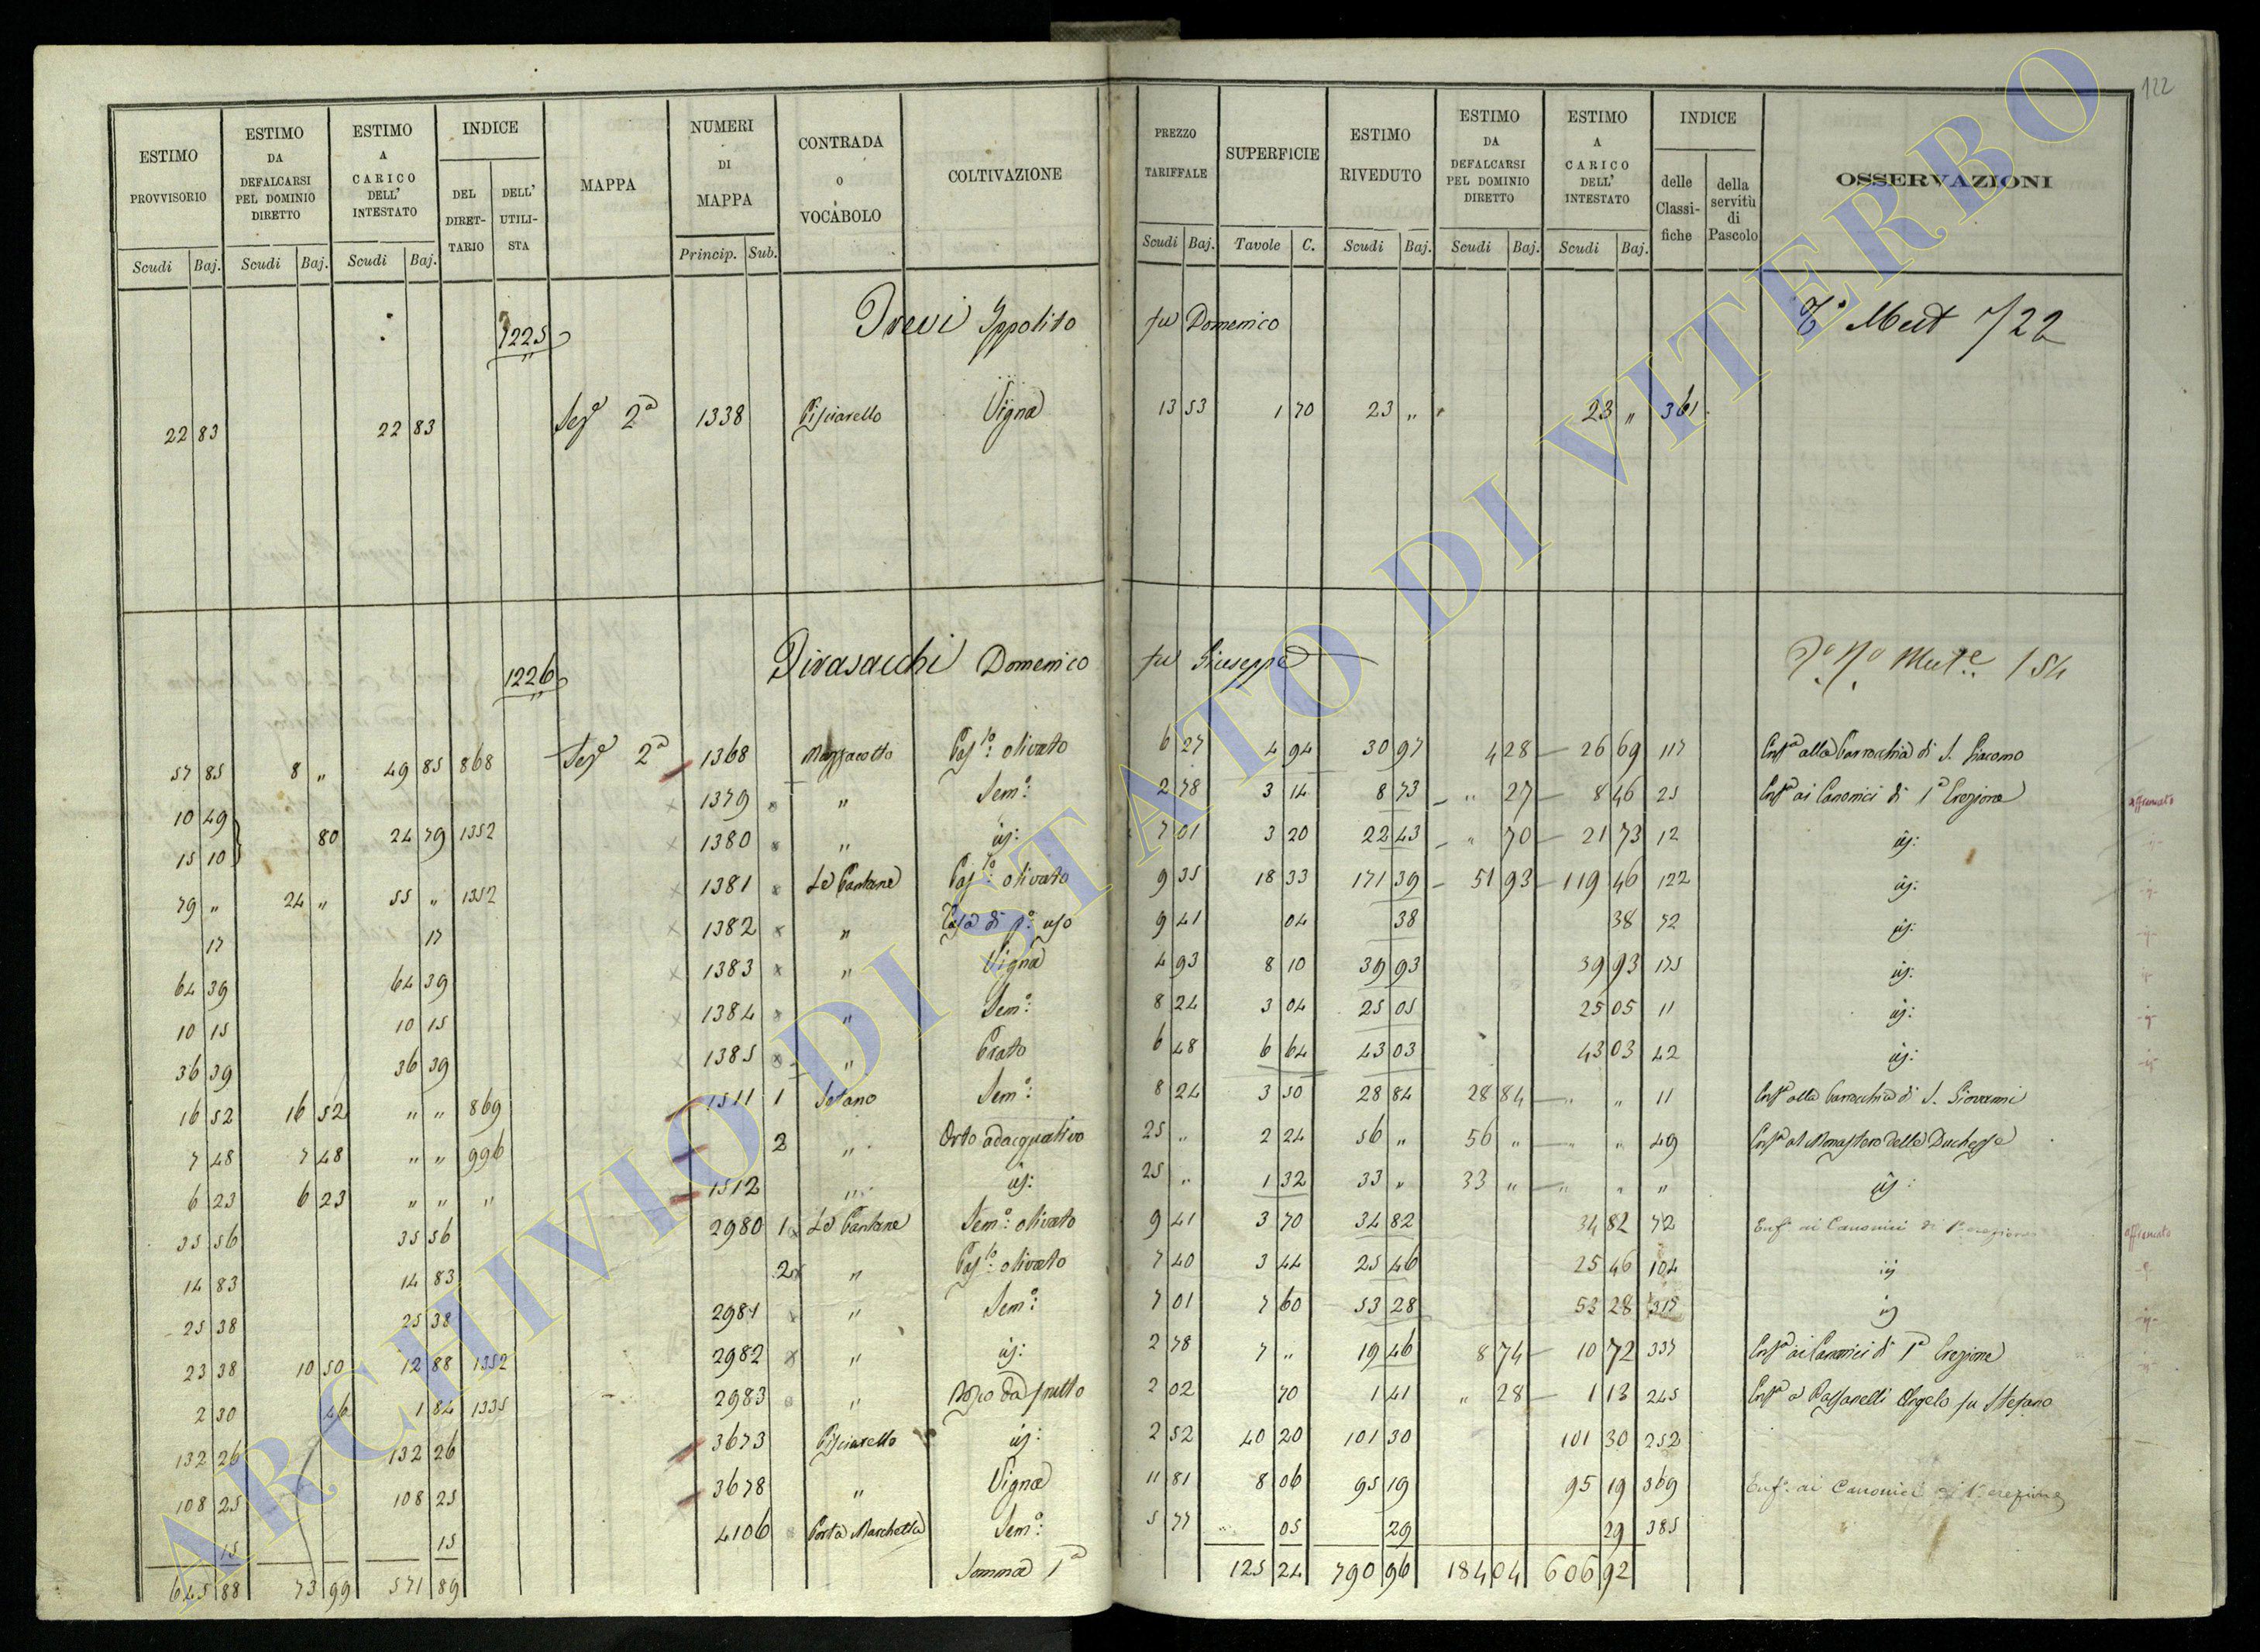 122
ESTIMO PROVVISORIO | ESTIMO DA DEFALCARSI PEL DOMINIO DIRETTO | ESTIMO A CARICO DELL' INTESTATO | INDICE | MAPPA | NUMERI DI MAPPA | CONTRADA O VOCABOLO | COLTIVAZIONE | PREZZO TARIFFALE | SUPERFICIE | ESTIMO RIVEDUTO | ESTIMO DA DEFALCARSI PEL DOMINIO DIRETTO | ESTIMO A CARICO DELL' INTESTATO | INDICE | OSSERVAZIONI
DEL DIRETTARIO | DELL' UTILISTA | delle Classifiche | della servitù di Pascolo
Scudi | Baj. | Scudi | Baj. | Scudi | Baj. | Princip. | Sub. | Scudi | Baj. | Tavole | C. | Scudi | Baj. | Scudi | Baj. | Scudi | Baj.
1225 Trevi Ippolito fu Domenico 722
22 83 | 22 83 | Sez.e 2a | 1338 | Pisciarello | Vigna | 13 53 | 1 70 | 23 " | 23 " | 361
1226 Tirasacchi Domenico fu Giuseppe 154
57 85 | 8 " | 49 85 | 868 | Sez.e 2a | 1368 | Mazzacotto | Pas.lo olivato | 6 27 | 4 94 | 30 97 | 4 28 | 26 69 | 117 | Enf.a alla Parrocchia di S. Giacomo
10 49 | 1379 | " | Sem.o | 2 78 | 3 14 | 8 73 | " 27 | 8 46 | 25 | Enf.a ai Canonici di 1a Erezione | affrancato
15 10 | 80 | 24 79 | 1352 | 1380 | " | id: | 7 01 | 3 20 | 22 43 | " 70 | 21 73 | 12 | id:
79 " | 24 " | 55 " | 1352 | 1381 | Le Pantane | Pas.lo olivato | 9 35 | 18 33 | 171 39 | 51 93 | 119 46 | 122 | id:
17 | 17 | 1382 | " | Casa di p.o uso | 9 41 | 04 | 38 | 38 | 72 | id:
64 39 | 64 39 | 1383 | " | Vigna | 4 93 | 8 10 | 39 93 | 39 93 | 175 | id:
10 15 | 10 15 | 1384 | " | Sem.o | 8 24 | 3 04 | 25 05 | 25 05 | 11 | id:
36 39 | 36 39 | 1385 | " | Prato | 6 48 | 6 64 | 43 03 | 43 03 | 42 | id:
16 52 | 16 52 | " " | 869 | 1511 | 1 | Sotano | Sem.o | 8 24 | 3 50 | 28 84 | 28 84 | " " | 11 | Enf.a alla Parrocchia di S. Giovanni
7 48 | 7 48 | " " | 996 | 2 | " | Orto adacquativo | 25 " | 2 24 | 56 " | 56 " | " " | 49 | Enf.a al Monastero della Duchessa
6 23 | 6 23 | " " | " | 1512 | " | id: | 25 " | 1 32 | 33 " | 33 " | " " | " | id:
35 56 | 35 56 | 2980 | 1 | Le Pantane | Sem.o olivato | 9 41 | 3 70 | 34 82 | 34 82 | 72 | Enf. ai Canonici di 1a erezione | affrancato
14 83 | 14 83 | 2 | " | Pas.lo olivato | 7 40 | 3 44 | 25 46 | 25 46 | 104 | id
25 38 | 25 38 | 2981 | " | Sem.o | 7 01 | 7 60 | 53 28 | 53 28 | 315 | id
23 38 | 10 50 | 12 88 | 1352 | 2982 | " | id: | 2 78 | 7 " | 19 46 | 8 74 | 10 72 | 337 | Enf.a ai Canonici di 1a Erezione
2 30 | 46 | 1 84 | 1335 | 2983 | " | Bosco da frutto | 2 02 | 70 | 1 41 | " 28 | 1 13 | 245 | Enf.a a Angelo fu Stefano
132 26 | 132 26 | 3673 | Pisciarello | id: | 2 52 | 40 20 | 101 30 | 101 30 | 252
108 25 | 108 25 | 3678 | " | Vigna | 11 81 | 8 06 | 95 19 | 95 19 | 369 | Enf. ai Canonici di 1a erezione
15 | 15 | 4106 | Porta Marchetta | Sem.o | 5 77 | " 05 | 29 | 29 | 385
645 88 | 73 99 | 571 89 | Somma 1a | 125 24 | 790 96 | 184 04 | 606 92
ARCHIVIO DI STATO DI VITERBO